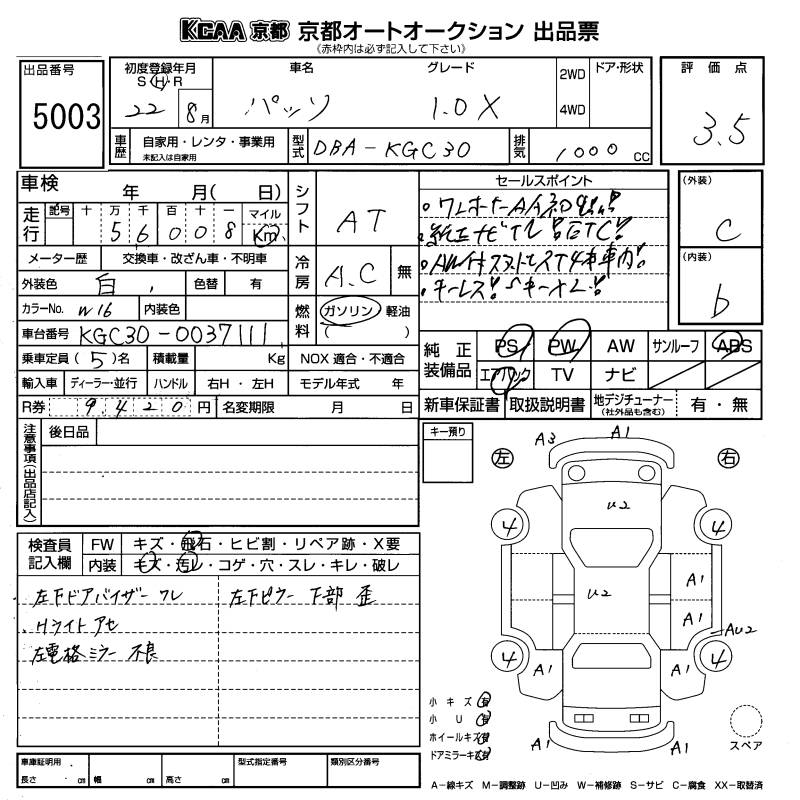 KCAA 京都 京都オートオークション 出品票
(赤枠内は必ず記入して下さい)
出品番号
5003
初度登録年月
S H R
22 8月
車名
パッソ
グレード
1.0X
2WD
4WD
ドア・形状
評価点
3.5
車歴
自家用・レンタ・事業用
未記入は自家用
型式
DBA-KGC30
排気
1000 CC
車検 年 月( 日)
走行
記号 十 万 千 百 十 一 マイル
5 6 0 0 8 Km
メーター歴 交換車・改ざん車・不明車
外装色 白 色替 有
カラーNo. W16 内装色
車台番号 KGC30-0037111
乗車定員 (5)名 積載量 Kg NOX 適合・不適合
輸入車 ディーラー・並行 ハンドル 右H・左H モデル年式 年
R券 9,420 円 名変期限 月 日
シフト AT
冷房 A.C 無
燃料 ガソリン 軽油
( )
セールスポイント
。ワンオーナーA/C
ナビTV ETC!
。AW付スタットレスT4本車内!
。キーレス!スペアキー
(外装)
C
(内装)
b
純正装備品
PS PW AW サンルーフ ABS
エアバック TV ナビ
新車保証書 取扱説明書 地デジチューナー
(社外品も含む) 有・無
注意事項(出品店記入)
後日品
キー預り
検査員記入欄
FW キズ・飛石・ヒビ割・リペア跡・X要
内装 キズ・汚レ・コゲ・穴・スレ・キレ・破レ
左フドアバイザーワレ 左フピラー下部歪
Hライトアセ
左電格ミラー不良
左 右
A3 A1
U2
4 4
U2 A1
A1
AU2
4 4
A1 A1
A1 A1
小キズ 有
小U 有
ホイールキズ 有
ドアミラーキズ 有
スペア
車庫証明用
長さ cm 幅 cm 高さ cm
型式指定番号 類別区分番号
A-線キズ M-調整跡 U-凹み W-補修跡 S-サビ C-腐食 XX-取替済